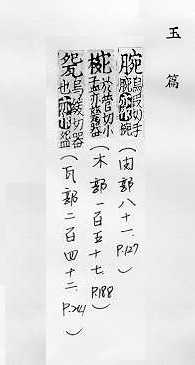 玉篇
腕 烏段切手腕亦作捥(肉部八十一. P.127)
於管切小盂亦作盌(木部一百五十七 P.188)
㼝 烏緩切器也亦作盌(瓦部二百四十二. P.244)